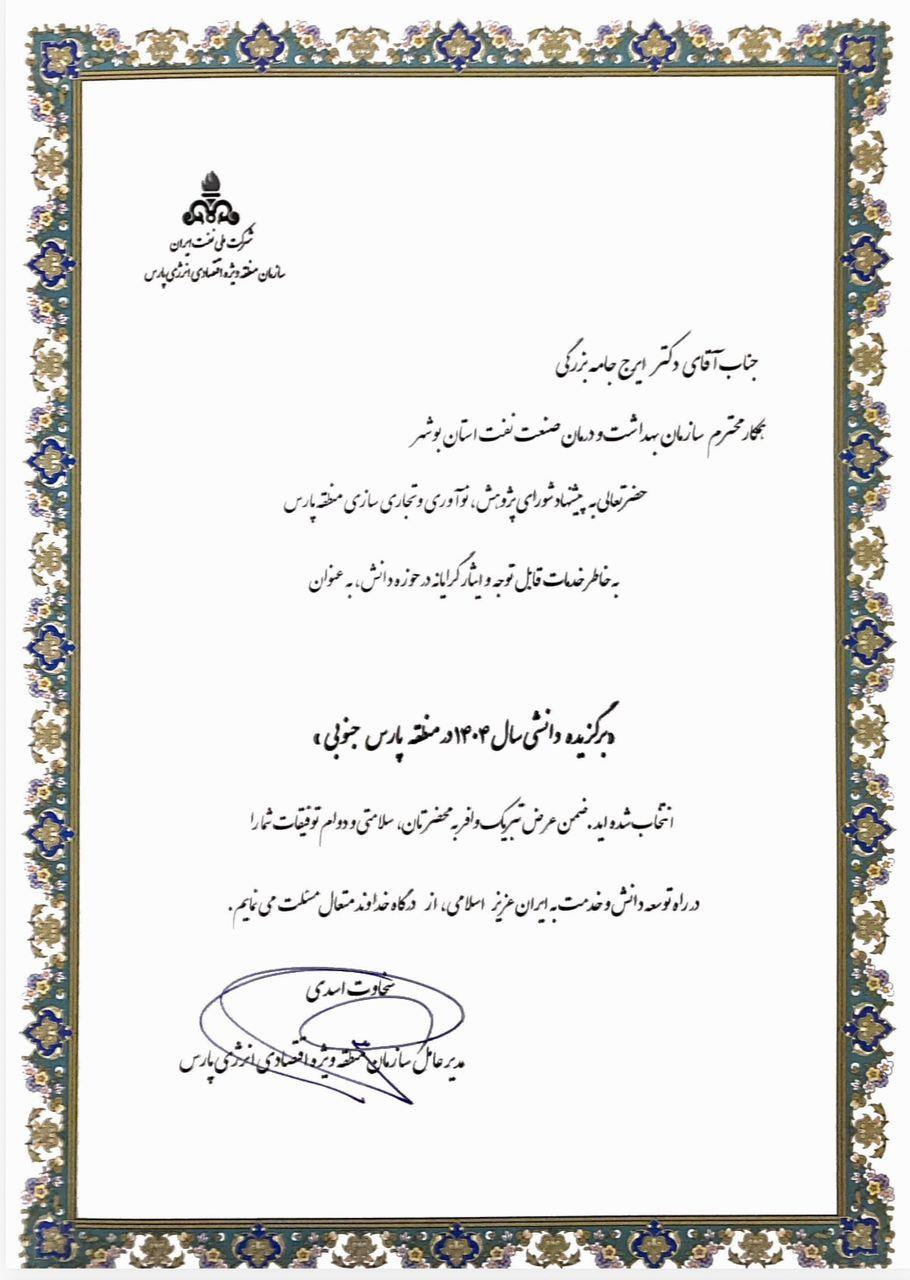 شرکت ملی نفت ایران
سازمان منطقه ویژه اقتصادی انرژی پارس
جناب آقای دکتر ایرج جامه بزرگی
همکار محترم سازمان بهداشت و درمان صنعت نفت استان بوشهر
حضرتعالی به پیشنهاد شورای پژوهش، نوآوری و تجاری سازی منطقه پارس
به خاطر خدمات قابل توجه و ایثارگرایانه در حوزه دانش، به عنوان
«برگزیده دانشی سال ۱۴۰۴ در منطقه پارس جنوبی»
انتخاب شده اید. ضمن عرض تبریک وافر به محضرتان، سلامتی و دوام توفیقات شما را
در راه توسعه دانش و خدمت به ایران عزیز اسلامی، از درگاه خداوند متعال مسئلت می نمایم.
سخاوت اسدی
مدیر عامل سازمان منطقه ویژه اقتصادی انرژی پارس